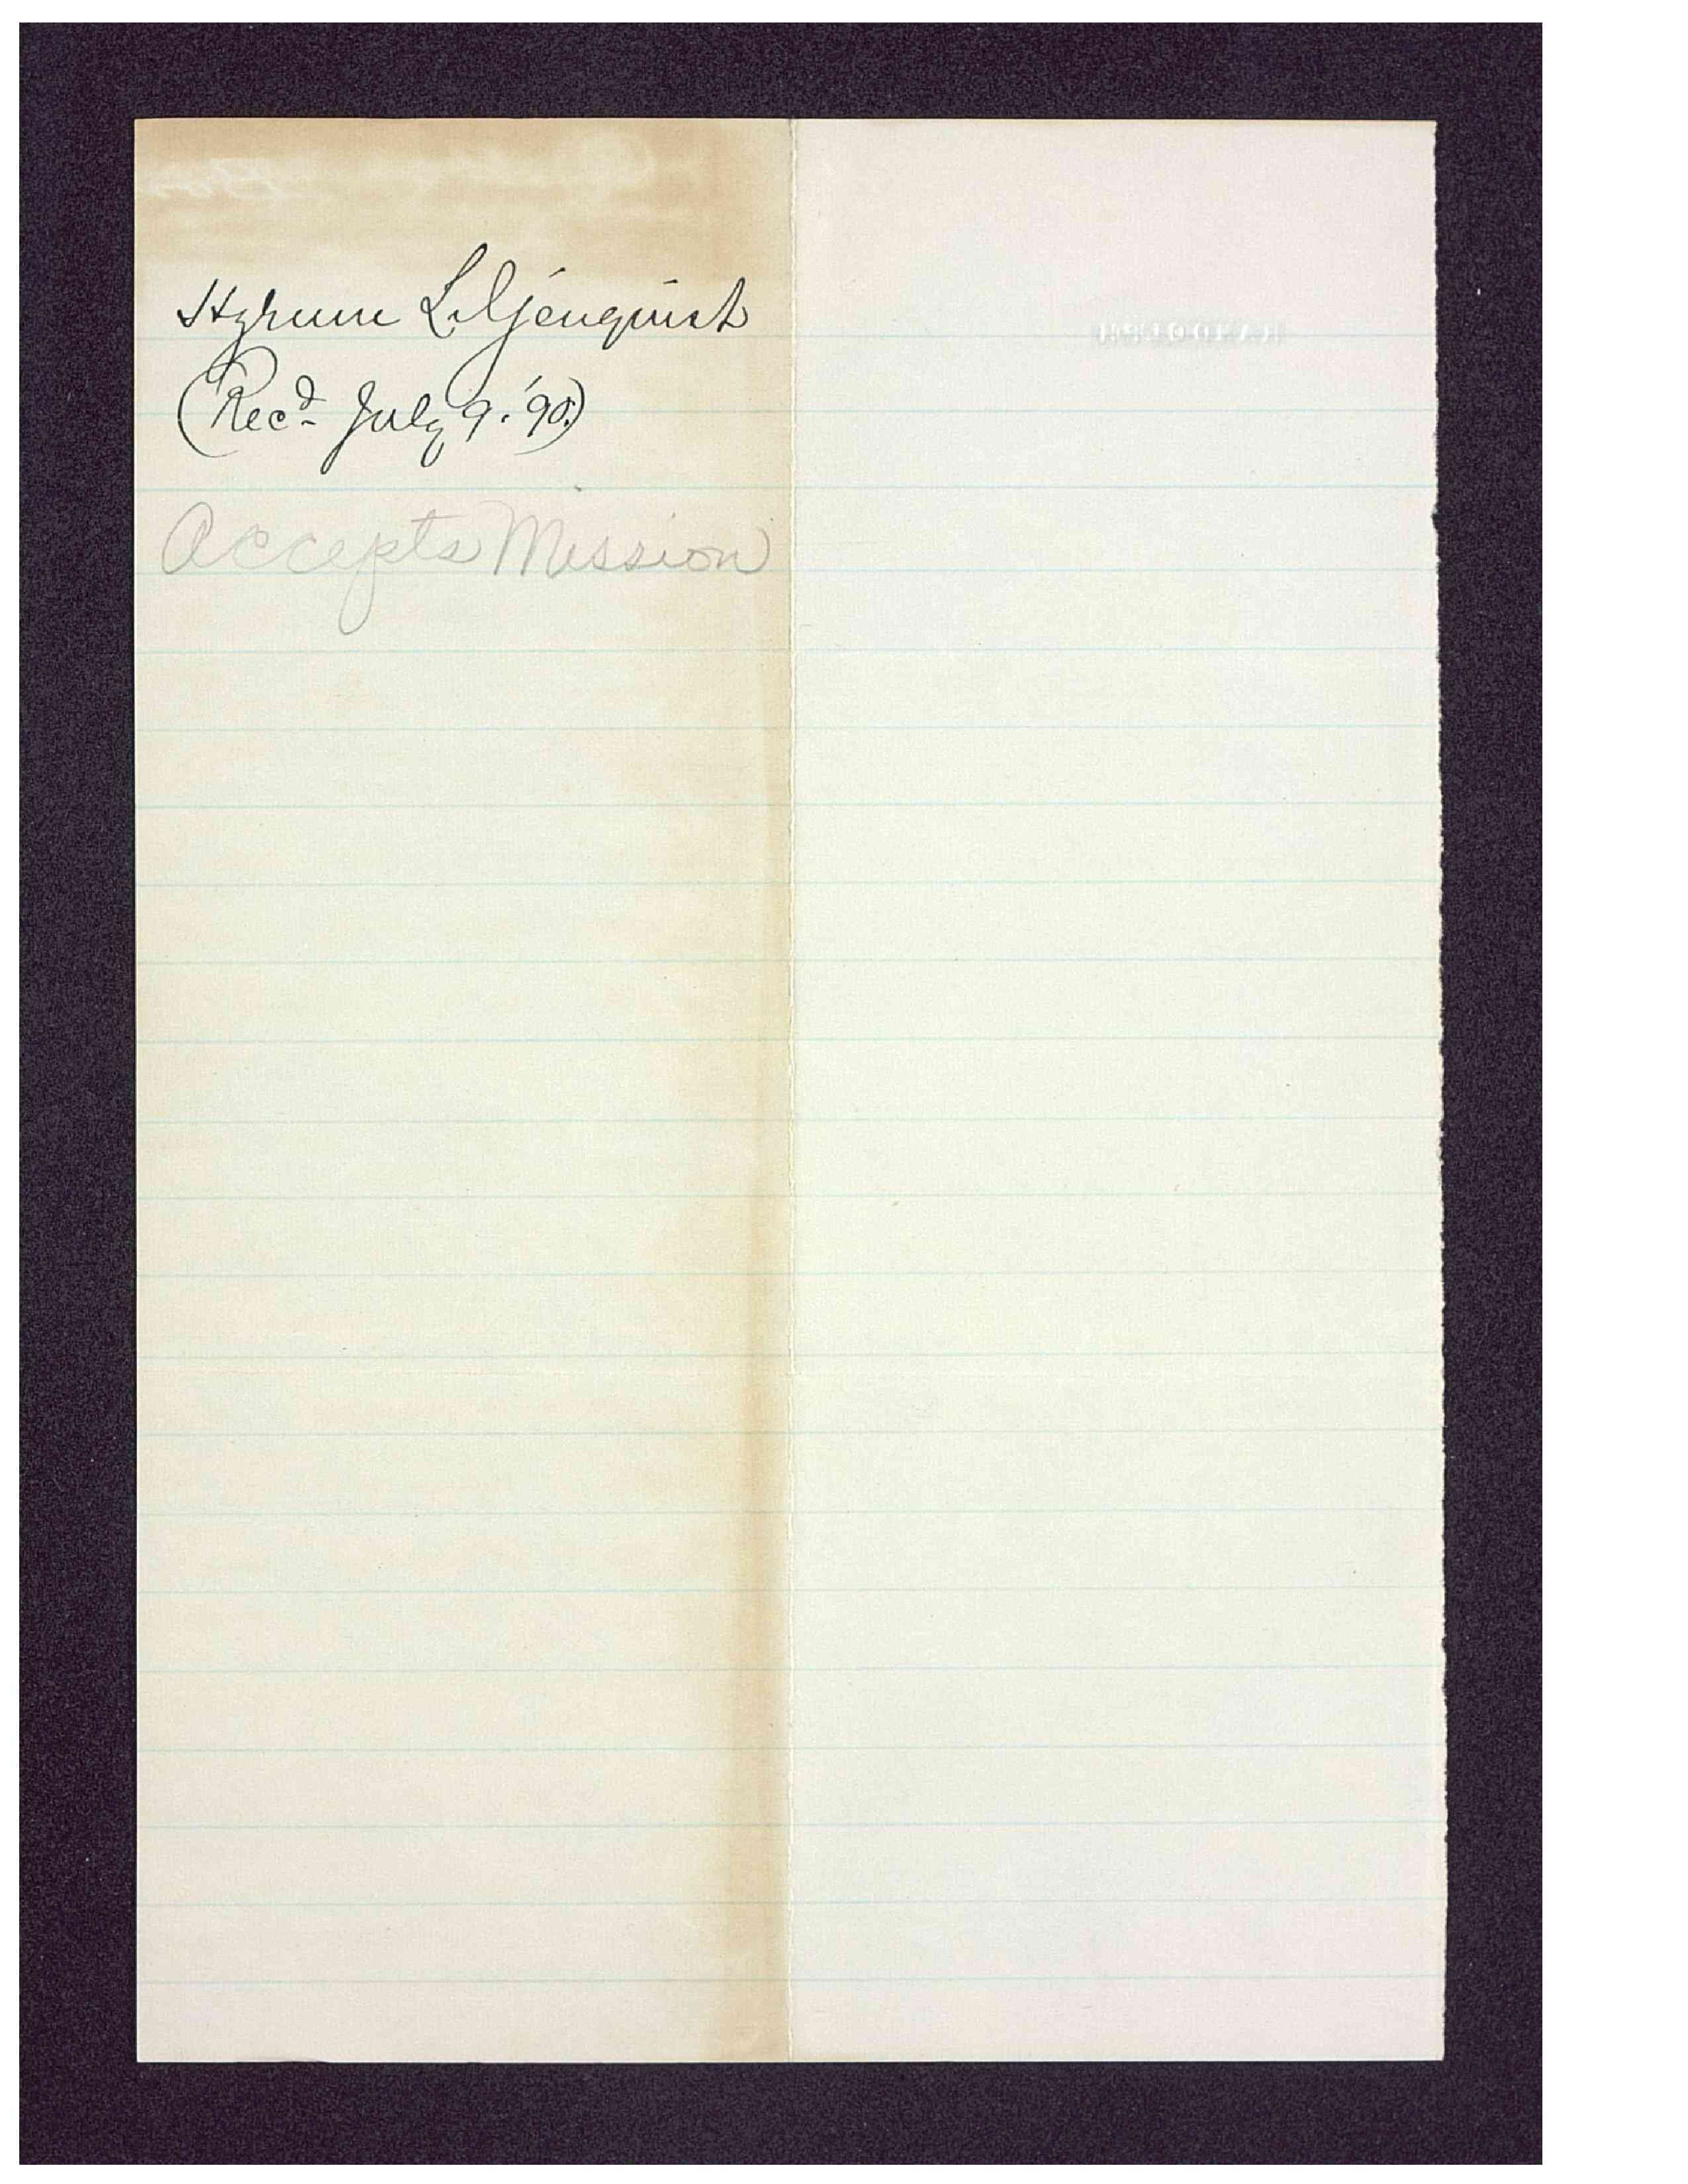 Hyrum Liljenquist
(Recd July 9. '90.)
Accepts Mission